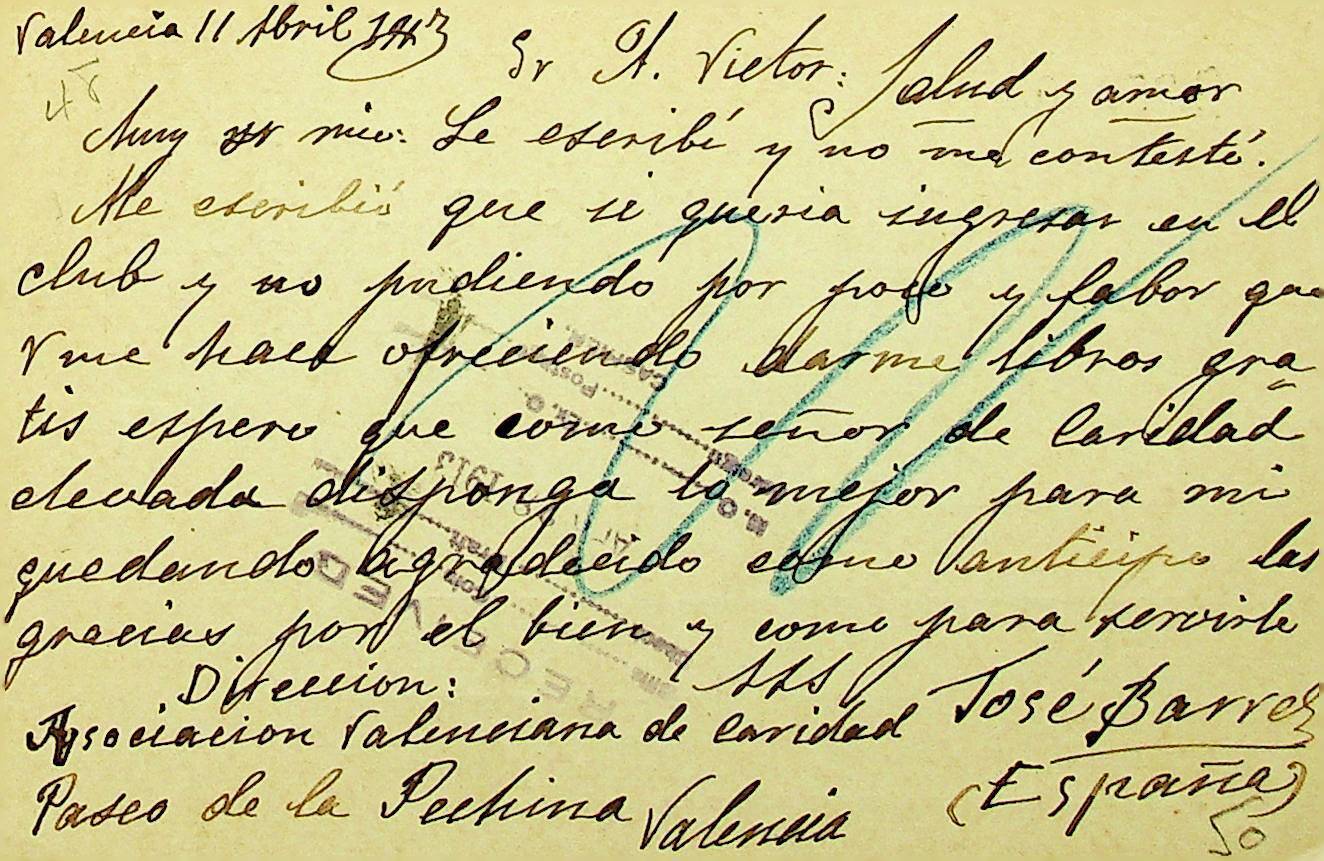 Valencia 11 Abril 1913
Sr A. Victor: Salud y amor
Muy sr mio: Le escribí y no me contestó.
Me escribió que si queria ingresar en el
club y no pudiendo por poco y fabor que
V me hace ofreciendo darme libros gra
tis espero que como señor de caridad
elevada disponga lo mejor para mi
quedando agradecido como anticipo las
gracias por el bien y como para servirle
SSS José Barres
Direccion:
Asociacion Valenciana de caridad
Paseo de la Pechina Valencia
(España)
50
RECEIVED
1913
M. O.